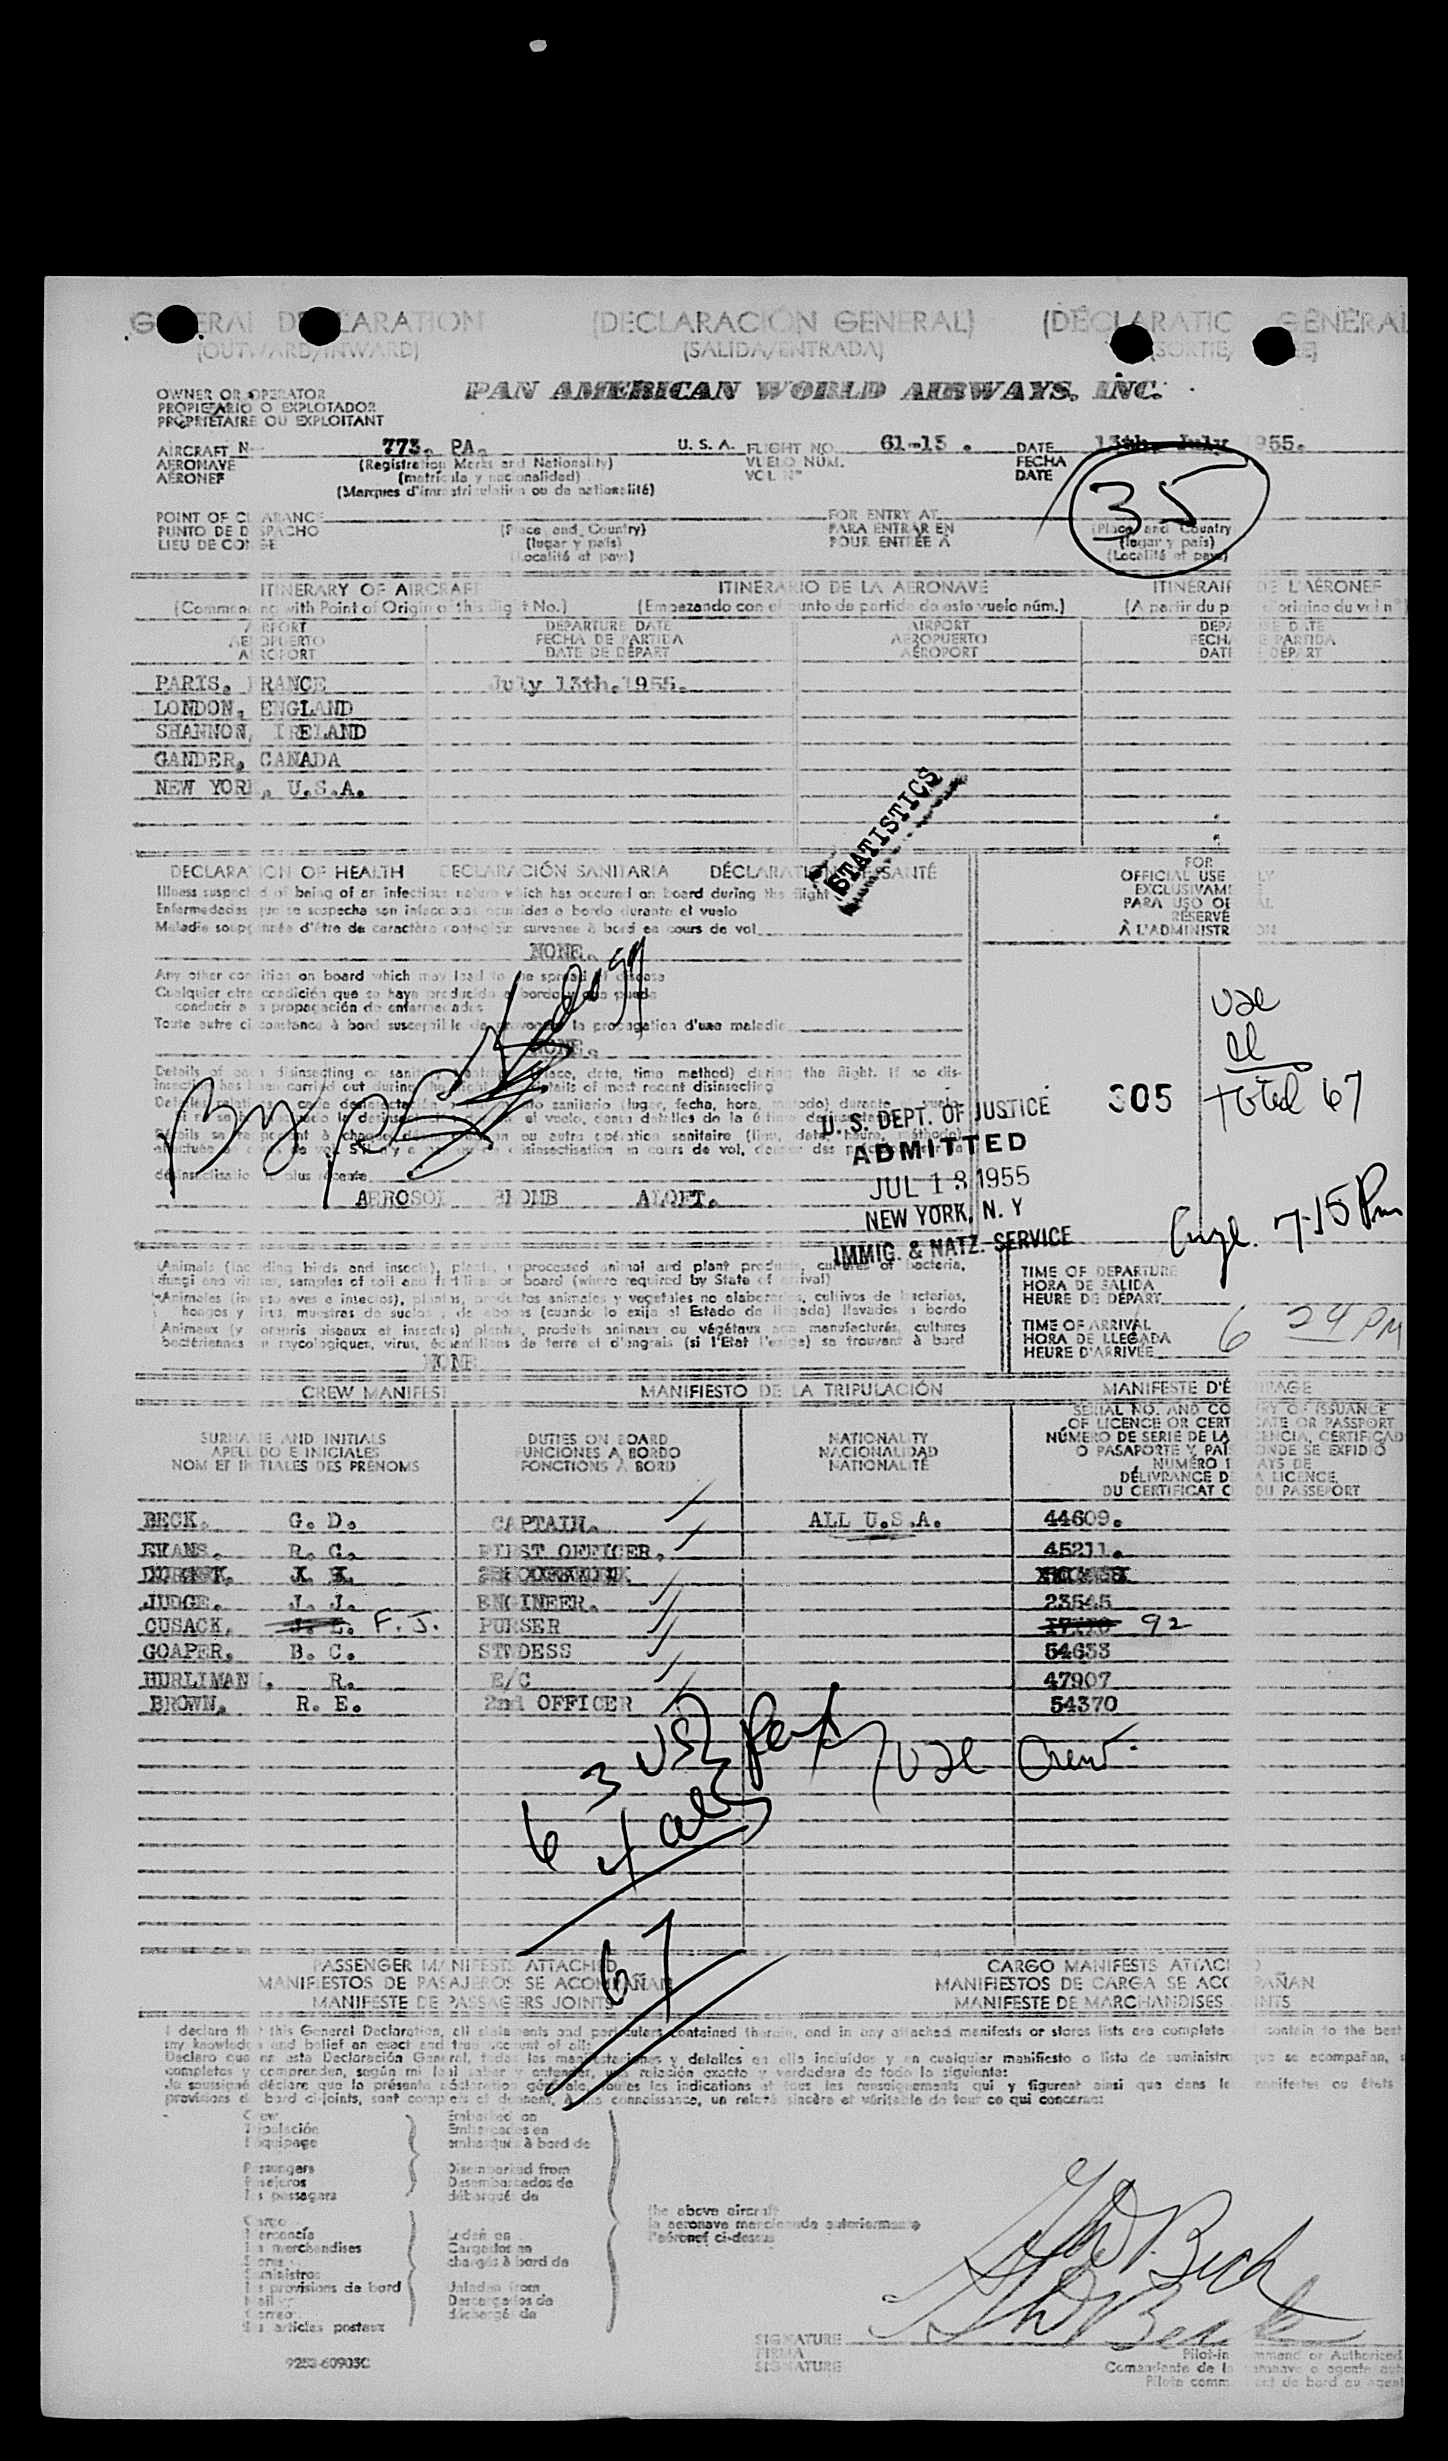 GENERAL DECLARATION (DECLARACIÓN GENERAL) (DÉCLARATION GÉNÉRAL
(OUTWARD/INWARD) (SALIDA/ENTRADA) (SORTIE/
PAN AMERICAN WORLD AIRWAYS, INC.
OWNER OR OPERATOR
PROPIETARIO O EXPLOTADOR
PROPRIÉTAIRE OU EXPLOITANT
AIRCRAFT N 773. PA. U.S.A. FLIGHT NO. 61-13 . DATE 13th. July 1955.
AERONAVE (Registration Marks and Nationality) VUELO NÚM. FECHA
AÉRONEF (matrícula y nacionalidad) VOL N° DATE
(Marques d'immatriculation ou de nationalité)
35
POINT OF CLEARANCE FOR ENTRY AT
PUNTO DE DESPACHO (Place and Country) PARA ENTRAR EN (Place and Country
LIEU DE CONGÉ (lugar y país) POUR ENTRÉE À (lugar y país)
(Localité et pays) (Localité et pays)
ITINERARY OF AIRCRAFT ITINERARIO DE LA AERONAVE ITINÉRAIRE DE L'AÉRONEF
(Commencing with Point of Origin of this Flight No.) (Empezando con el punto de partida de este vuelo núm.) (A partir du point d'origine du vol n°)
AIRPORT DEPARTURE DATE AIRPORT DEPARTURE DATE
AEROPUERTO FECHA DE PARTIDA AEROPUERTO FECHA DE PARTIDA
AÉROPORT DATE DE DÉPART AÉROPORT DATE DE DÉPART
PARIS, FRANCE July 13th.1955.
LONDON, ENGLAND
SHANNON, IRELAND
GANDER, CANADA
NEW YORK, U.S.A.
STATISTICS
DECLARATION OF HEALTH DECLARACIÓN SANITARIA DÉCLARATION DE SANTÉ
Illness suspected of being of an infectious nature which has occured on board during the flight
Enfermedades que se sospecha son infecciosas ocurridas a bordo durante el vuelo
Maladie soupçonnée d'être de caractère contagieux survenue à bord en cours de vol
NONE.
FOR
OFFICIAL USE ONLY
EXCLUSIVAMENTE
PARA USO OFICIAL
RÉSERVÉ
À L'ADMINISTRATION
Any other condition on board which may lead to the spread of disease
Cualquier otra condición que se haya producido a bordo y que pueda
conducir a la propagación de enfermedades
Toute autre circonstance à bord susceptible de provoquer la propagation d'une maladie
NONE.
Details of each disinsecting or sanitary treatment (place, date, time method) during the flight. If no dis-
insecting has been carried out during the flight give details of most recent disinsecting
AEROSOL BOMB ALOFT.
305
Total 67
U. S. DEPT. OF JUSTICE
ADMITTED
JUL 13 1955
NEW YORK, N. Y
IMMIG. & NATZ. SERVICE
7-15 Pm
Animals (including birds and insects), plants, unprocessed animal and plant products, cultures of bacteria,
fungi and viruses, samples of soil and fertilizer on board (where required by State of arrival)
Animales (incluso aves e insectos), plantas, productos animales y vegetales no elaborados, cultivos de bacterias,
hongos y virus, muestras de suelos y de abonos (cuando lo exija el Estado de llegada) llevados a bordo
Animaux (y compris oiseaux et insectes) plantes, produits animaux ou végétaux non manufacturés, cultures
bactériennes et mycologiques, virus, échantillons de terre et d'engrais (si l'Etat l'exige) se trouvant à bord
NONE
TIME OF DEPARTURE
HORA DE SALIDA
HEURE DE DÉPART
TIME OF ARRIVAL
HORA DE LLEGADA 6 24 PM
HEURE D'ARRIVÉE
CREW MANIFEST MANIFIESTO DE LA TRIPULACIÓN MANIFESTE D'ÉQUIPAGE
SURNAME AND INITIALS DUTIES ON BOARD NATIONALITY SERIAL NO. AND COUNTRY OF ISSUANCE
APELLIDO E INICIALES FUNCIONES A BORDO NACIONALIDAD OF LICENCE OR CERTIFICATE OR PASSPORT
NOM ET INITIALES DES PRÉNOMS FONCTIONS À BORD NATIONALITÉ NÚMERO DE SERIE DE LA LICENCIA, CERTIFICAD
O PASAPORTE Y PAÍS DONDE SE EXPIDIÓ
NUMÉRO ET PAYS DE
DÉLIVRANCE DE LA LICENCE,
DU CERTIFICAT OU DU PASSEPORT
BECK. G. D. CAPTAIN. ALL U.S.A. 44609.
EVANS. R. C. FIRST OFFICER. 45211.
JUDGE. J. J. ENGINEER. 23545
CUSACK. F. J. PURSER 92
GOAPER. B. C. STWDESS 54633
HURLIMANN, R. E/C 47907
BROWN. R. E. 2nd OFFICER 54370
3 USC
6 4
67
Crew
PASSENGER MANIFESTS ATTACHED CARGO MANIFESTS ATTACHED
MANIFIESTOS DE PASAJEROS SE ACOMPAÑAN MANIFIESTOS DE CARGA SE ACOMPAÑAN
MANIFESTE DE PASSAGERS JOINTS MANIFESTE DE MARCHANDISES JOINTS
I declare that this General Declaration, all statements and particulars contained therein, and in any attached manifests or stores lists are complete contain to the best
my knowledge and belief an exact and true account of all:
Declaro que en esta Declaración General, todas las manifestaciones y detalles en ella incluidos y en cualquier manifiesto o lista de suministros que se acompañan, s
completos y comprenden, según mi leal saber y entender, una relación exacta y verdadera de todo lo siguiente:
Je soussigné déclare que la présente déclaration générale, toutes les indications et tous les renseignements qui y figurent ainsi que dans les manifestes ou états
provisions de bord ci-joints, sont complets et donnent, à ma connaissance, un relevé sincère et véritable de tout ce qui concerne:
Crew Embarked on
Tripulación Embarcados en
l'équipage embarqués à bord de
Passengers Disembarked from
Pasajeros Desembarcados de
les passagers débarqués de
Cargo the above aircraft
Mercancía Laden on la aeronave mencionada anteriormente
les marchandises Cargados en l'aéronef ci-dessus
Stores chargés à bord de
Suministros
les provisions de bord Unladen from
Mail Descargados de
Correo déchargés de
les articles postaux
G D. Beck
SIGNATURE
FIRMA
SIGNATURE
Pilot-in command or Authorized
Comandante de la aeronave o agente aut
Pilote commandant de bord ou agent
9253-60903C